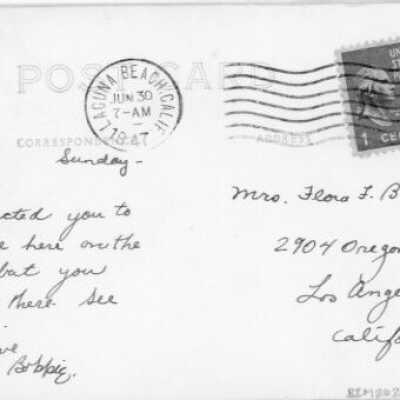 POST CARD
LAGUNA BEACH CALIF.
JUN 30
7-AM
1947
UN
ST
1 CE
CORRESPONDENCE
ADDRESS
Sunday-
cted you to
e here on the
but you
there. See
ve
Bobbie.
Mrs. Flora F. B
2904 Oregon
Los Ange
Califo